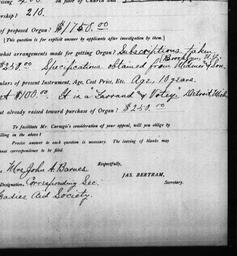 of proposed Organ? $1750.00
[This question is for explicit answer by applicants after investigation by them.]
what arrangements made for getting Organ? Subscriptions taken
$259.00. Specifications obtained from
culars of present Instrument, Age, Cost Price, Etc. Age, 10 years.
$100.00. It is a "Farrand & Votey" Detroit Mich
nt already raised toward purchase of Organ? $259.00
To facilitate Mr. Carnegie's consideration of your appeal, will you oblige by
filling in the above?
Precise answer to each question is necessary. The leaving of blanks may
cause correspondence to be filed.
Respectfully,
Mrs. John A. Barnes
JAS. BERTRAM,
Designation, Corresponding Sec.
Secretary.
Ladies Aid Society.